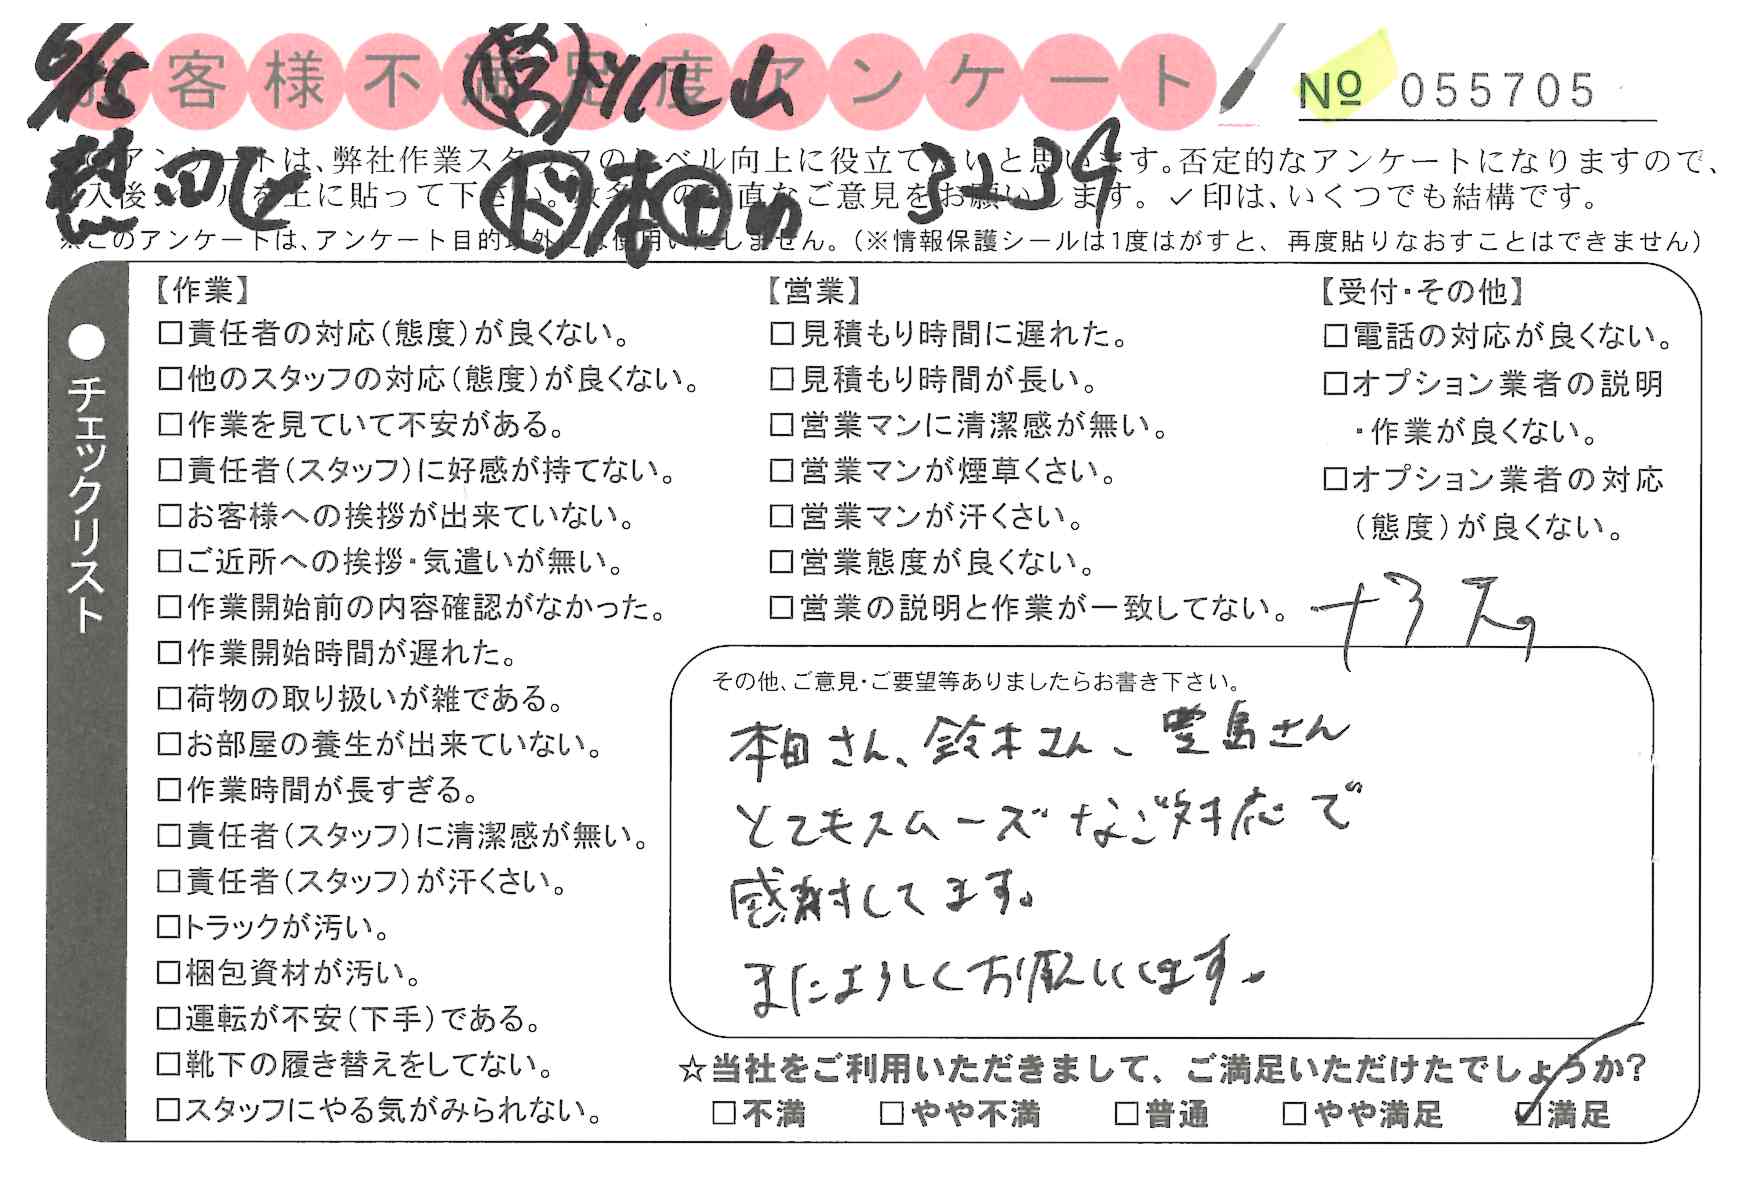 6/15
お客様不満足度アンケート
No 055705
このアンケートは、弊社作業スタッフのレベル向上に役立てたいと思います。否定的なアンケートになりますので、
記入後シールを上に貼って下さい。数多くの率直なご意見をお願いします。✓印は、いくつでも結構です。
3234
※このアンケートは、アンケート目的以外には使用いたしません。(※情報保護シールは1度はがすと、再度貼りなおすことはできません)
●チェックリスト
【作業】
□責任者の対応(態度)が良くない。
□他のスタッフの対応(態度)が良くない。
□作業を見ていて不安がある。
□責任者(スタッフ)に好感が持てない。
□お客様への挨拶が出来ていない。
□ご近所への挨拶・気遣いが無い。
□作業開始前の内容確認がなかった。
□作業開始時間が遅れた。
□荷物の取り扱いが雑である。
□お部屋の養生が出来ていない。
□作業時間が長すぎる。
□責任者(スタッフ)に清潔感が無い。
□責任者(スタッフ)が汗くさい。
□トラックが汚い。
□梱包資材が汚い。
□運転が不安(下手)である。
□靴下の履き替えをしてない。
□スタッフにやる気がみられない。
【営業】
□見積もり時間に遅れた。
□見積もり時間が長い。
□営業マンに清潔感が無い。
□営業マンが煙草くさい。
□営業マンが汗くさい。
□営業態度が良くない。
□営業の説明と作業が一致してない。
【受付・その他】
□電話の対応が良くない。
□オプション業者の説明
・作業が良くない。
□オプション業者の対応
(態度)が良くない。
その他、ご意見・ご要望等ありましたらお書き下さい。
本田さん、鈴木さん、豊島さん
とてもスムーズなご対応で
感謝してます。
またよろしくお願いします。
☆当社をご利用いただきまして、ご満足いただけたでしょうか?
□不満 □やや不満 □普通 □やや満足 ☑満足